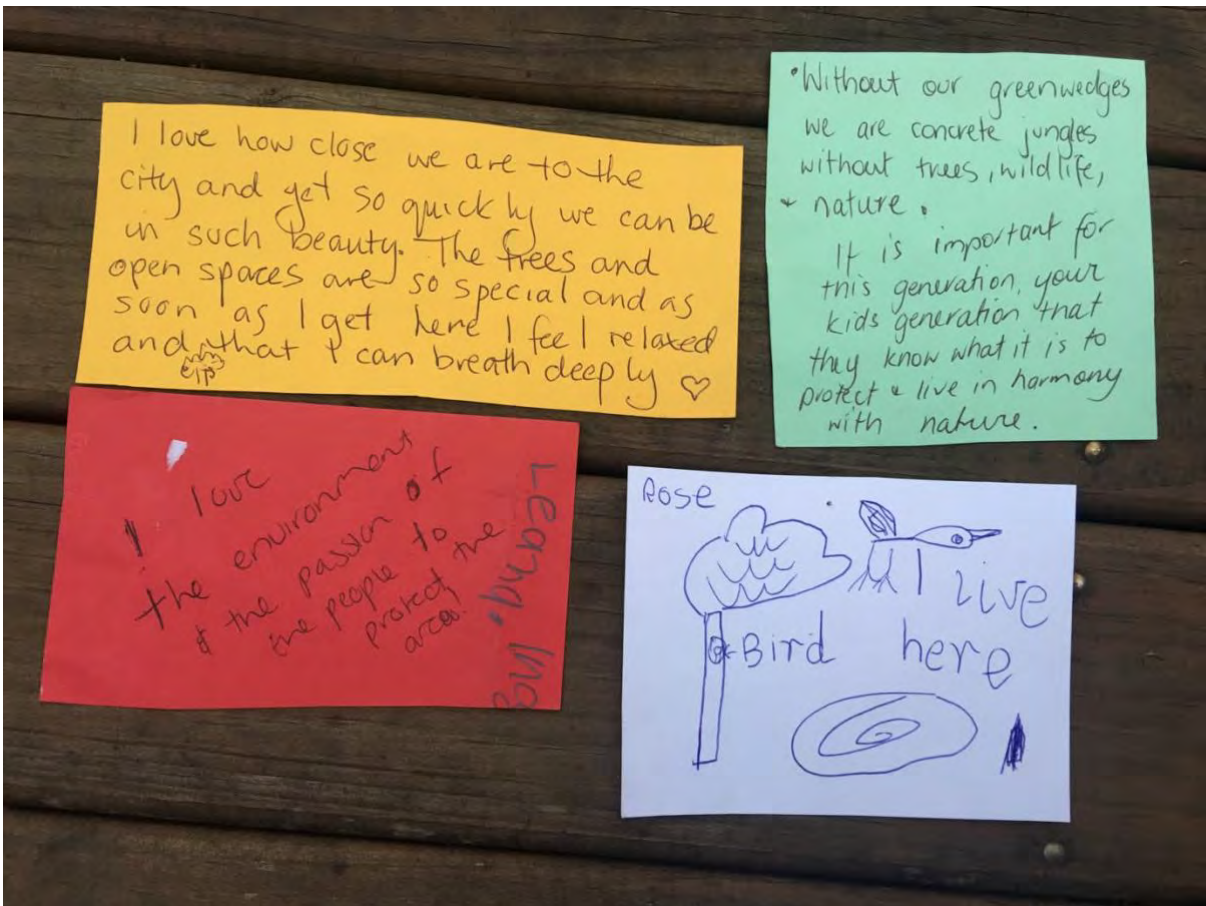 I love how close we are to the
city and yet so quickly we can be
in such beauty. The trees and
open spaces are so special and as
soon as I get here I feel relaxed
and that I can breath deeply ♡
• Without our greenwedges
we are concrete jungles
without trees, wildlife,
+ nature.
It is important for
this generation, your
kids generation that
they know what it is to
protect & live in harmony
with nature.
I love
the environment
& the passion of
the people to
protect the
area.
Leana.
Rose
I live
Bird here